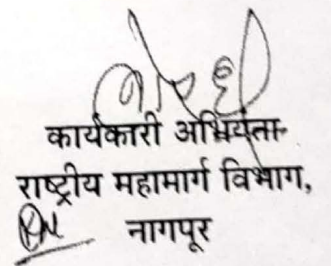 कार्यकारी अभियंता
राष्ट्रीय महामार्ग विभाग,
नागपूर